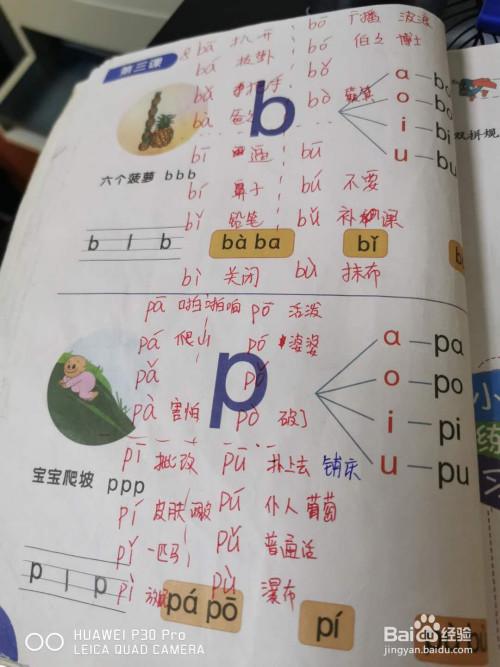 第三课
bā 扒开 bō 广播 波浪
bá 拔 bó 伯父 博士
bǎ 把手 bǒ
bà 爸爸 bò 簸箕
b
a — ba
o — bo
i — bi
u — bu
双拼规
bī 逼 bū
bí 鼻子 bú 不要
bǐ 铅笔 bǔ 补课
bì 关闭 bù 抹布
六个菠萝 bbb
b l b
bà ba
bǐ
pā 啪啪响 pō 活泼
pá 爬山 pó 婆婆
pǎ pǒ
pà 害怕 pò 破
p
a — pa
o — po
i — pi
u — pu
pī 批改 pū 扑上去
pí 皮肤 pú 仆人 葡萄
pǐ 一匹马 pǔ 普通话
pì 放屁 pù 瀑布
宝宝爬坡 ppp
p l p
pá pō
pí
小
练
HUAWEI P30 Pro
LEICA QUAD CAMERA
Baidu经验
jingyan.baidu.com